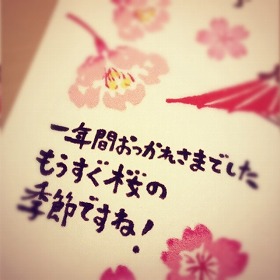 一年間おつかれさまでした
もうすぐ桜の
季節ですね!